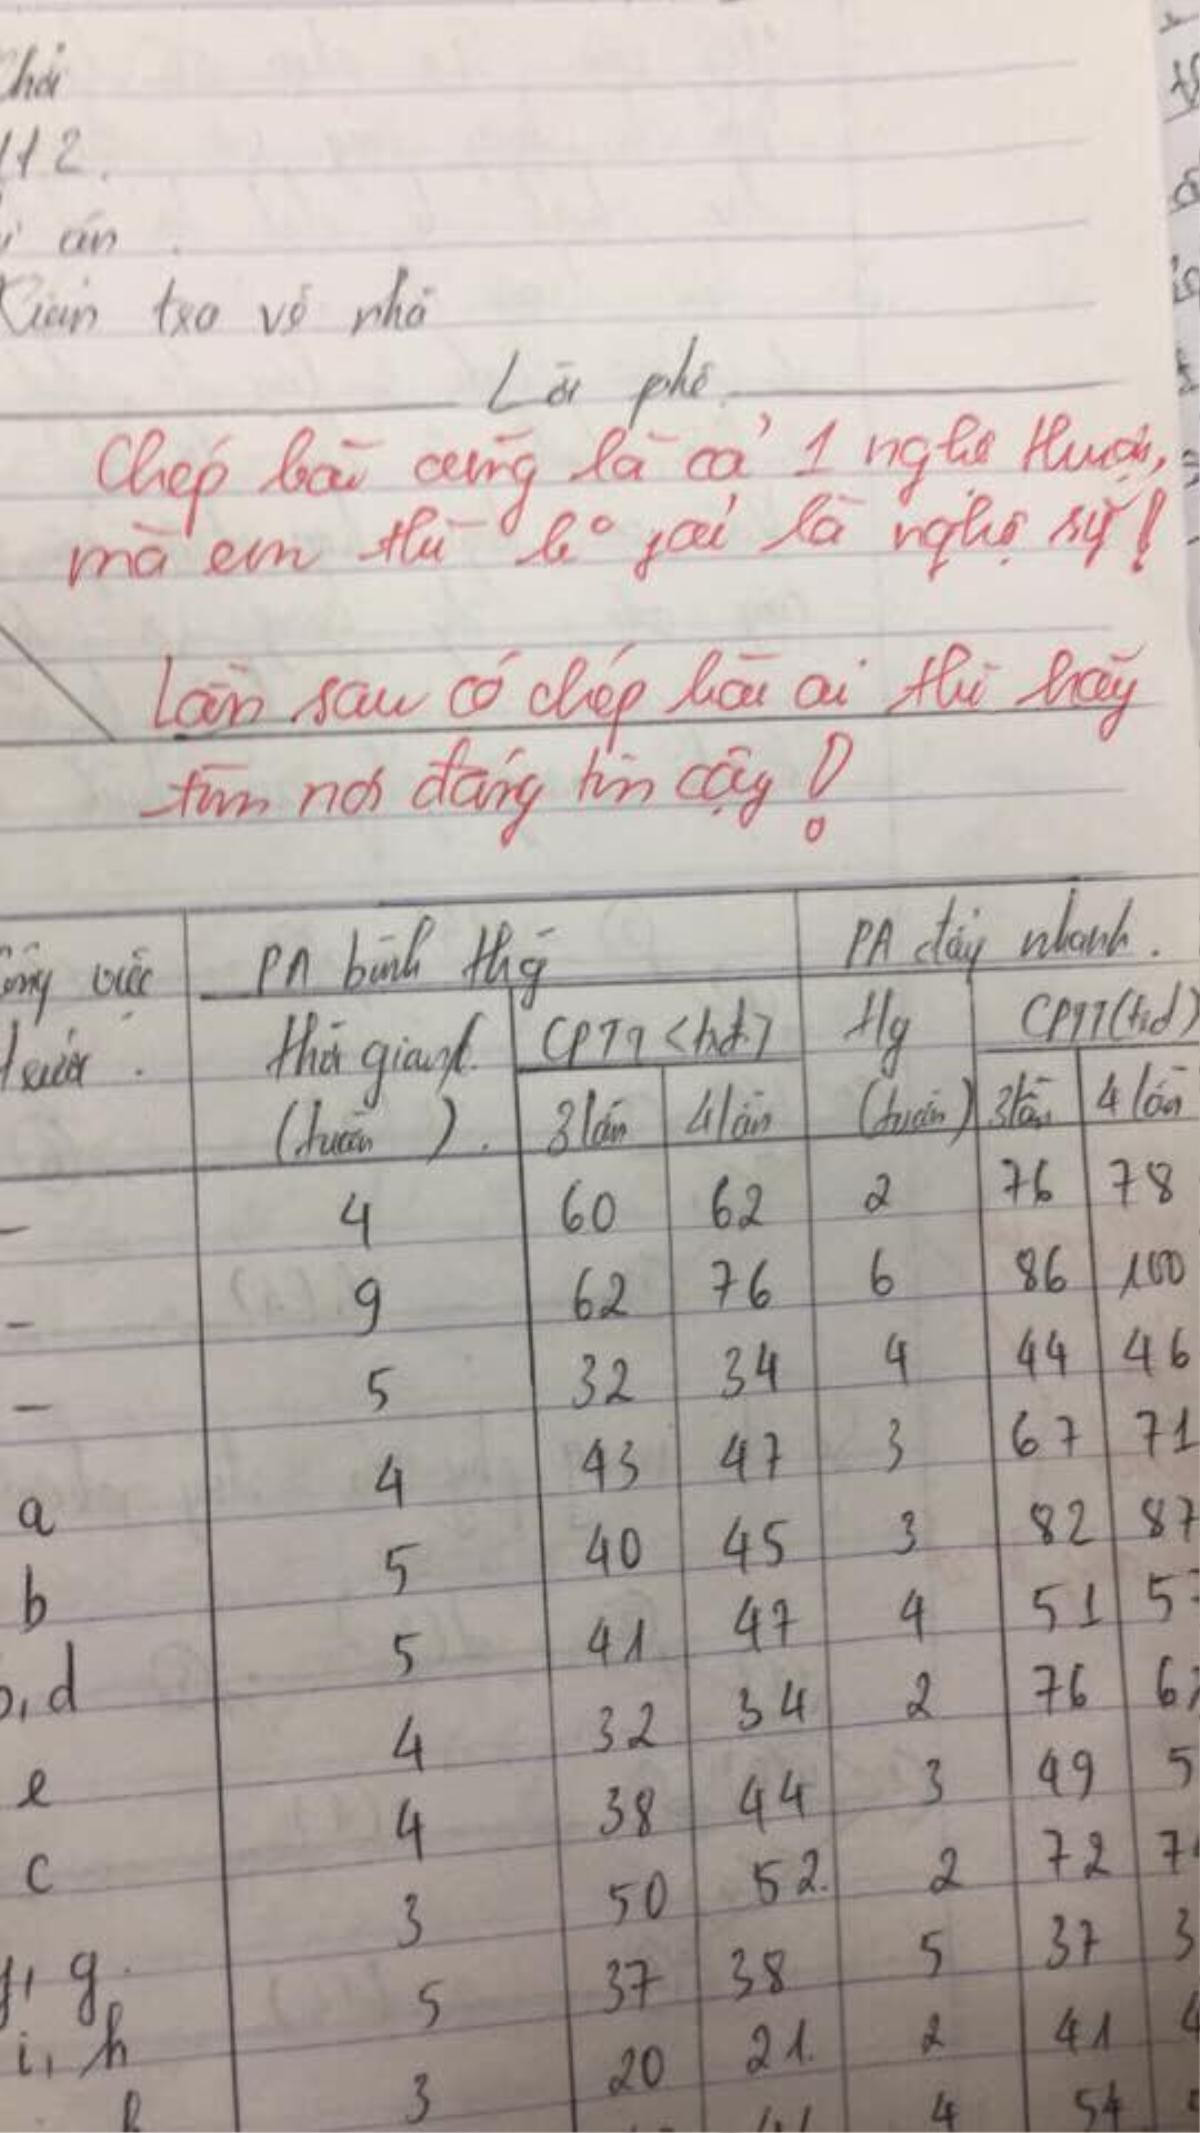 112.
án
Kiểm tra về nhà
Lời phê
Chép bài cũng là cả 1 nghệ thuật,
mà em thì ko phải là nghệ sỹ!
Lần sau có chép bài ai thì hãy
tìm nơi đáng tin cậy!
việc PA bình thg PA đẩy nhanh.
trước. Thời gian CPTT (trđ) Tg CPTT (trđ)
(tuần). 3 lần 4 lần (tuần) 3 lần 4 lần
- 4 60 62 2 76 78
- 9 62 76 6 86 100
- 5 32 34 4 44 46
a 4 43 47 3 67 71
b 5 40 45 3 82 87
, d 5 41 47 4 51 5
e 4 32 34 2 76 6
c 4 38 44 3 49 5
, g 3 50 52. 2 72 7
i, h 5 37 38 5 37 3
3 20 21. 2 41 4
4 54